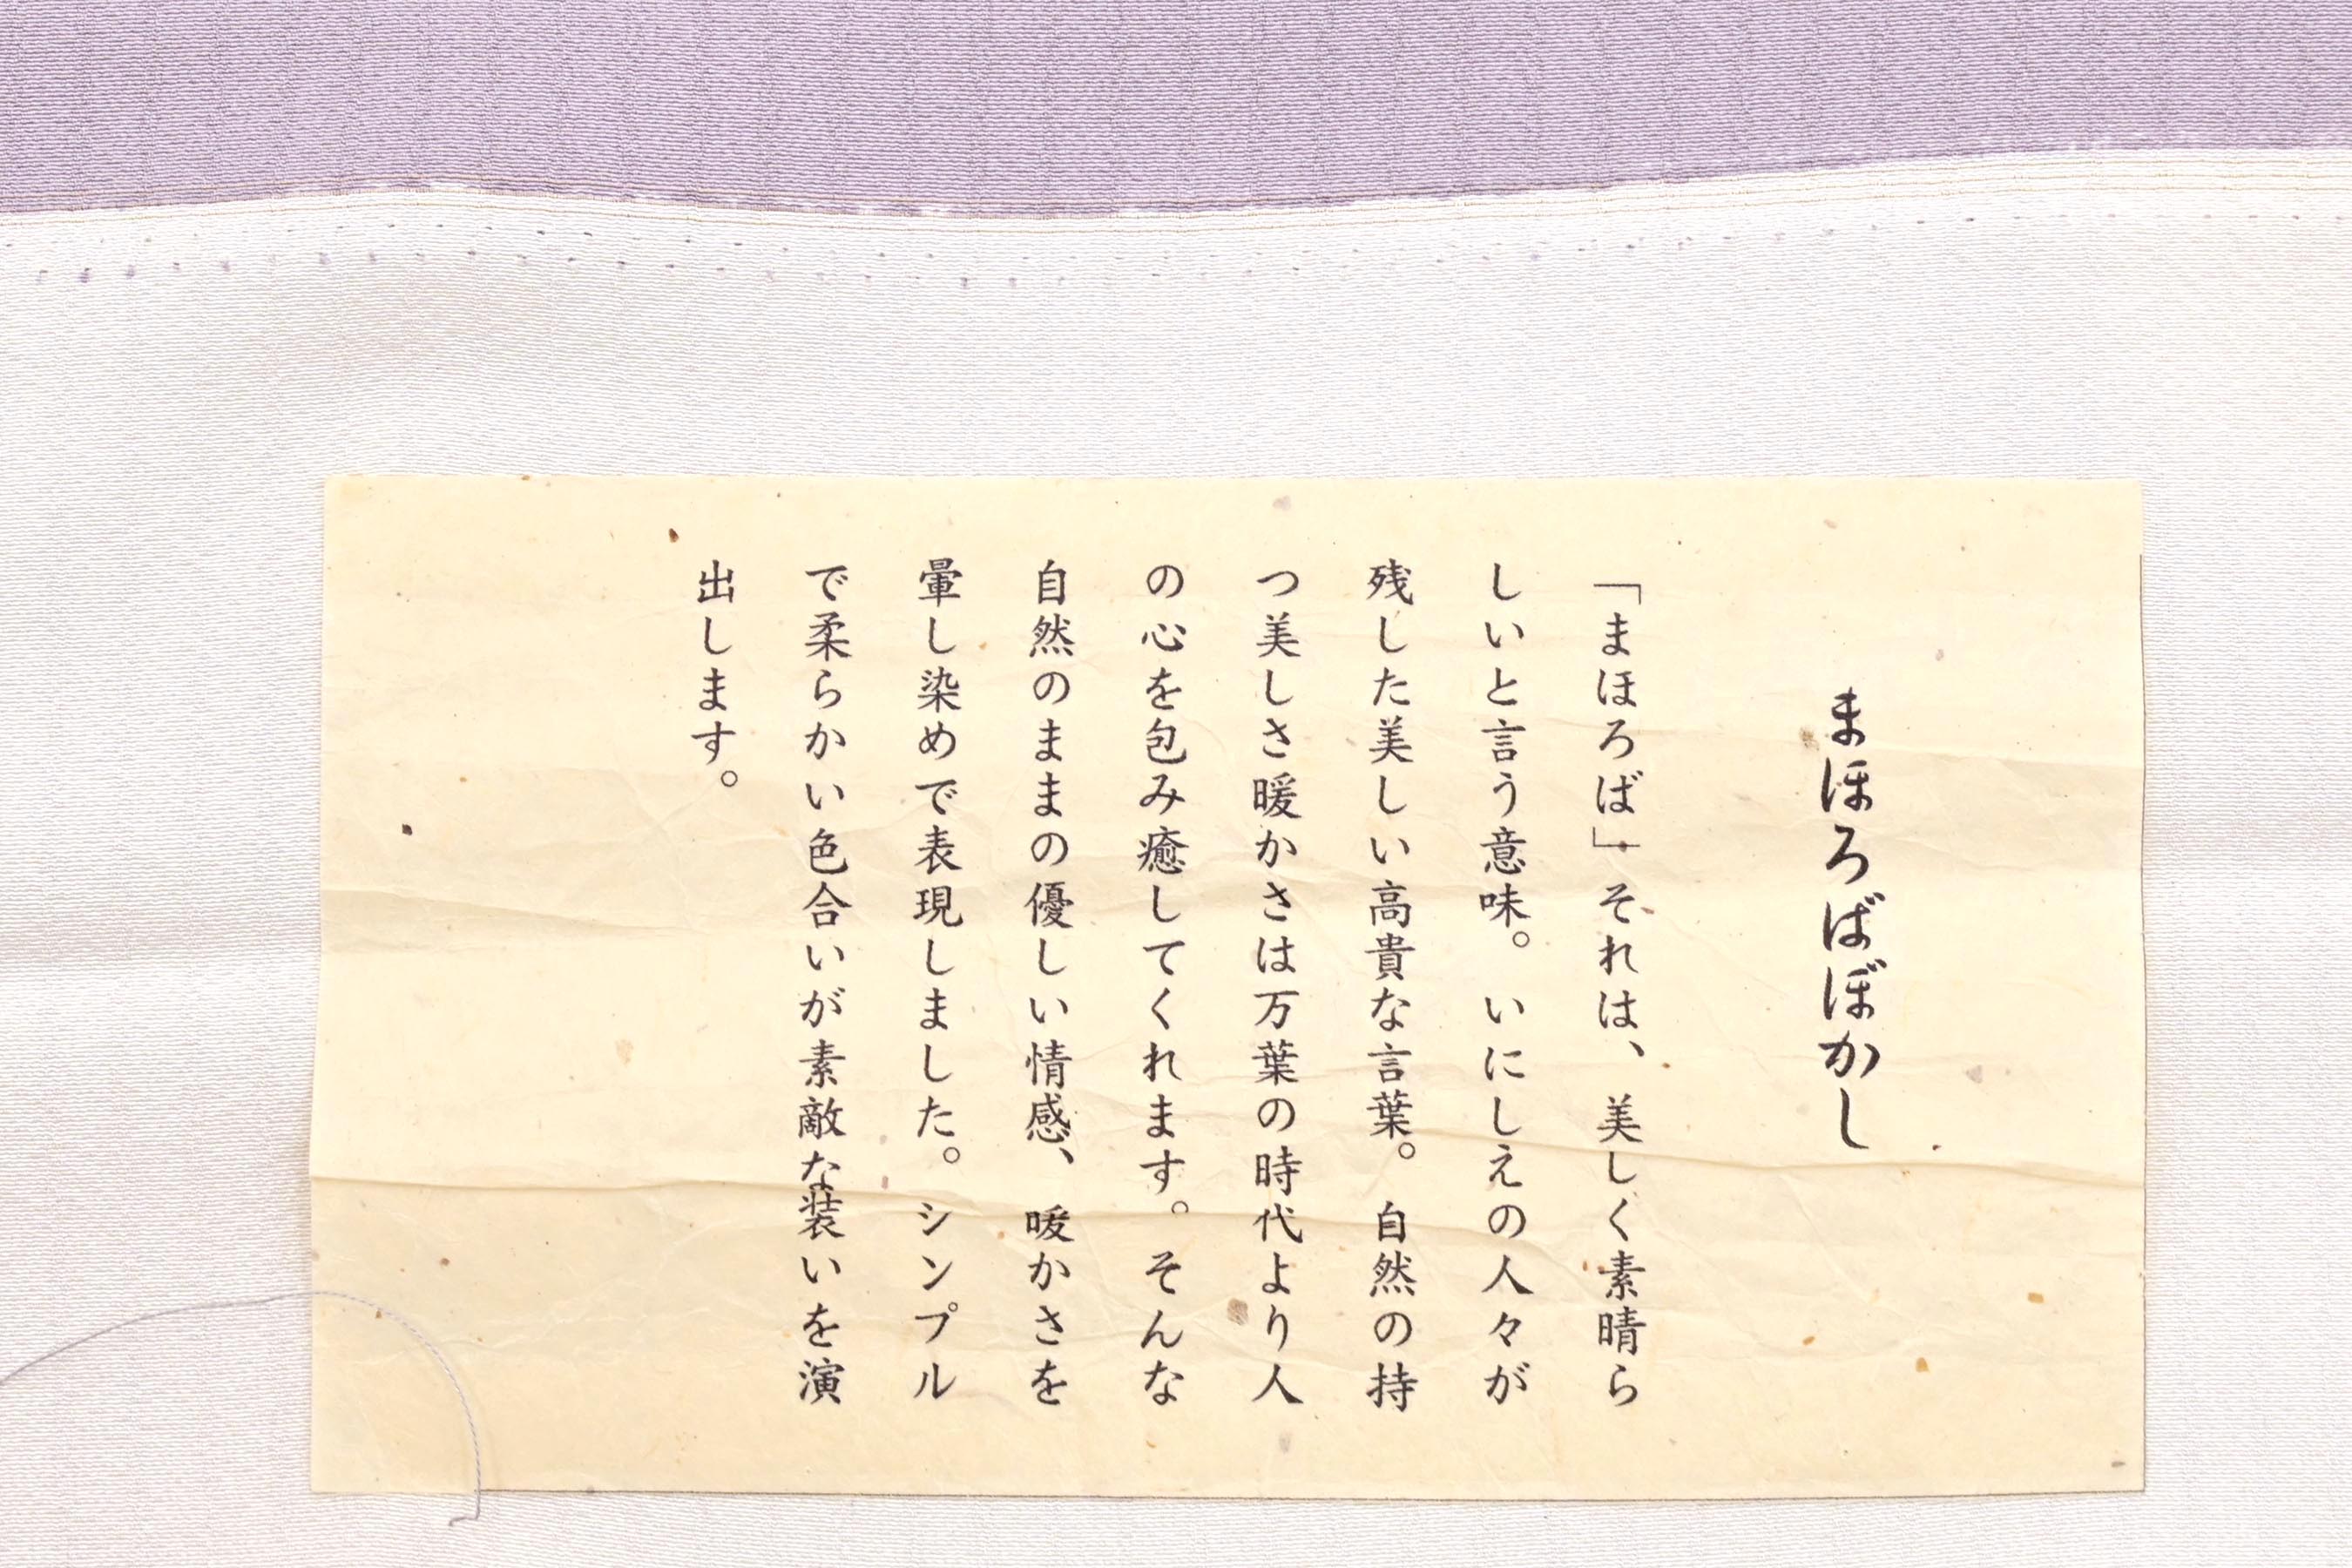 まほろばぼかし
「まほろば」それは、美しく素晴ら
しいと言う意味。いにしえの人々が
残した美しい高貴な言葉。自然の持
つ美しさ暖かさは万葉の時代より人
の心を包み癒してくれます。そんな
自然のままの優しい情感、暖かさを
暈し染めで表現しました。シンプル
で柔らかい色合いが素敵な装いを演
出します。